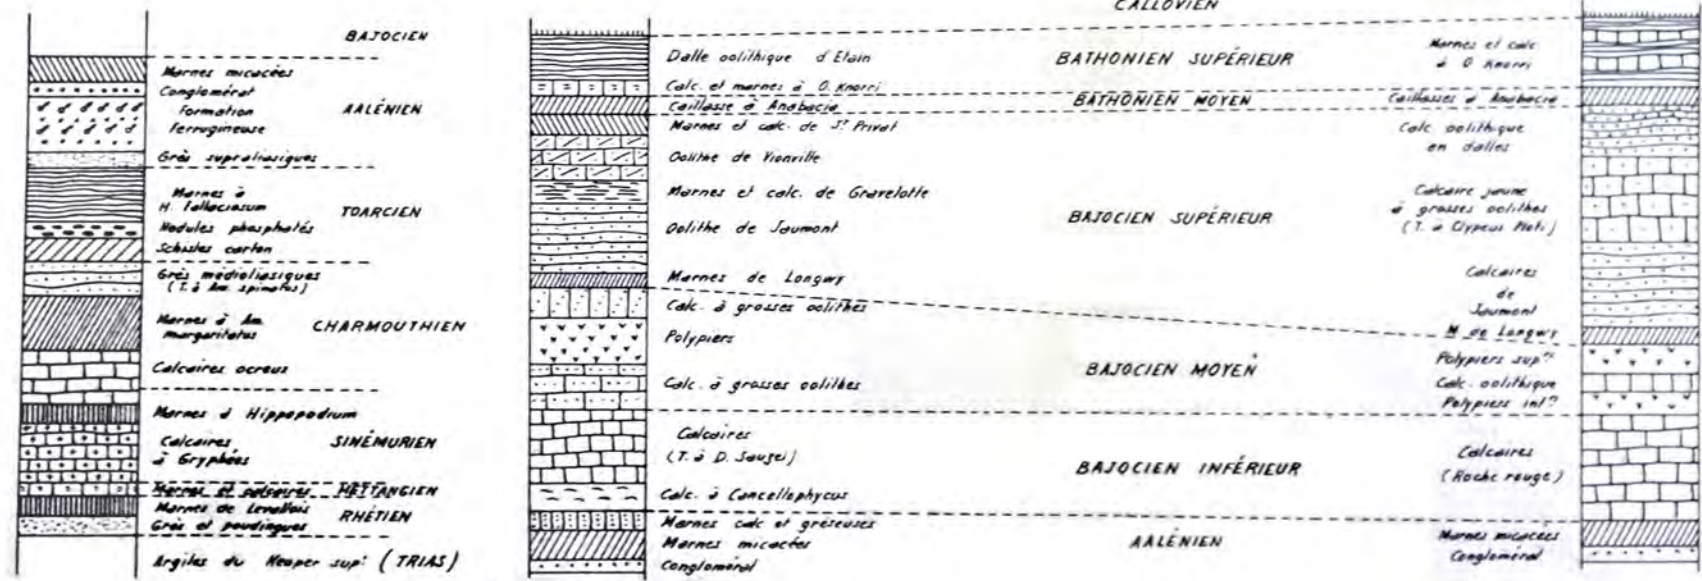 BAJOCIEN
Marnes micacées
Conglomérat
Formation
ferrugineuse
AALÉNIEN
Grès supraliasiques
Marnes à
H. fallaciosum
TOARCIEN
Nodules phosphatés
Schistes carton
Grès médioliasiques
(T. à Am. spinatus)
Marnes à Am.
margaritatus
CHARMOUTHIEN
Calcaires ocreux
Marnes à Hippopodium
Calcaires
à Gryphées
SINÉMURIEN
Marnes et calcaires HETTANGIEN
Marnes de Levallois
Grès et poudingues
RHÉTIEN
Argiles du Keuper supr (TRIAS)
Dalle oolithique d'Etain
Calc. et marnes à O. Knorri
Caillasse à Anabacia
Marnes et calc. de St Privat
Oolithe de Vionville
Marnes et calc. de Gravelotte
Oolithe de Jaumont
Marnes de Longwy
Calc. à grosses oolithes
Polypiers
Calc. à grosses oolithes
Calcaires
(T. à D. Sauzei)
Calc. à Cancellophycus
Marnes calc et gréseuses
Marnes micacées
Conglomérat
CALLOVIEN
BATHONIEN SUPÉRIEUR
BATHONIEN MOYEN
BAJOCIEN SUPÉRIEUR
BAJOCIEN MOYEN
BAJOCIEN INFÉRIEUR
AALÉNIEN
Marnes et calc
à O Knorri
Caillasses à Anabacia
Calc. oolithique
en dalles
Calcaire jaune
à grosses oolithes
(T. à Clypeus Ploti)
Calcaires
de
Jaumont
M de Longwy
Polypiers supr
Calc. oolithique
Polypiers infr
Calcaires
(Roche rouge)
Marnes micacées
Conglomérat